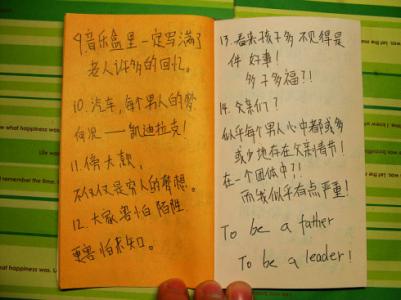 9.音乐盒里一定写满了
老人许多的回忆。
10.汽车,每个男人的梦
何况——凯迪拉克!
11.傍大款,
不仅仅是穷人的梦想。
12.大家害怕陌生
更害怕未知。
13.看来孩子多不见得是
件好事!
多子多福?!
14.父亲们?
似乎每个男人心中都或多
或少地存在父亲情节!
在一个团体中?!
而我似乎有点严重!
To be a father
To be a leader!